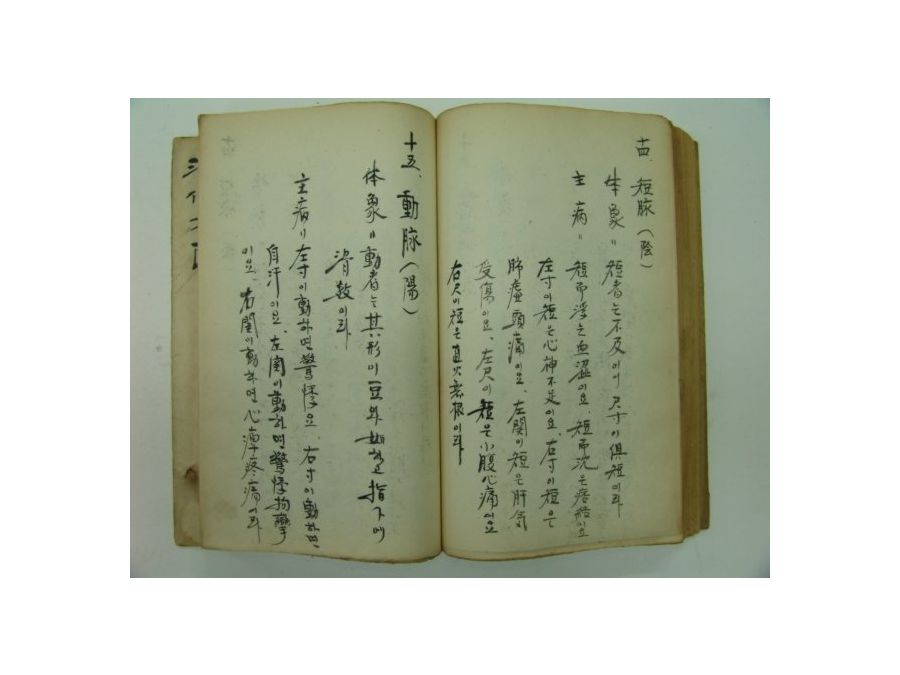 十四、短脉(陰)
体象〃 短者는 不及이이 尺寸이 俱短이라
主病〃 短而浮之血澀이요、短而沈은 痞
左寸이 短은 心神不足이요、右寸이 短은
肺虛頭痛이요、左関이 短은 肝氣
受傷이요、左尺이 短은 小腹心痛이요
右尺이 短은 真火
十五、動脉(陽)
体象〃 動者는 其形이 豆와 如하고 指下에
滑数이라
主病〃 左寸이 動하면 驚悸요、右寸이 動하면
自汗이요、左関이 動하면 驚悸拘攣
이요、右関이 動하면 心痺疼痛이라